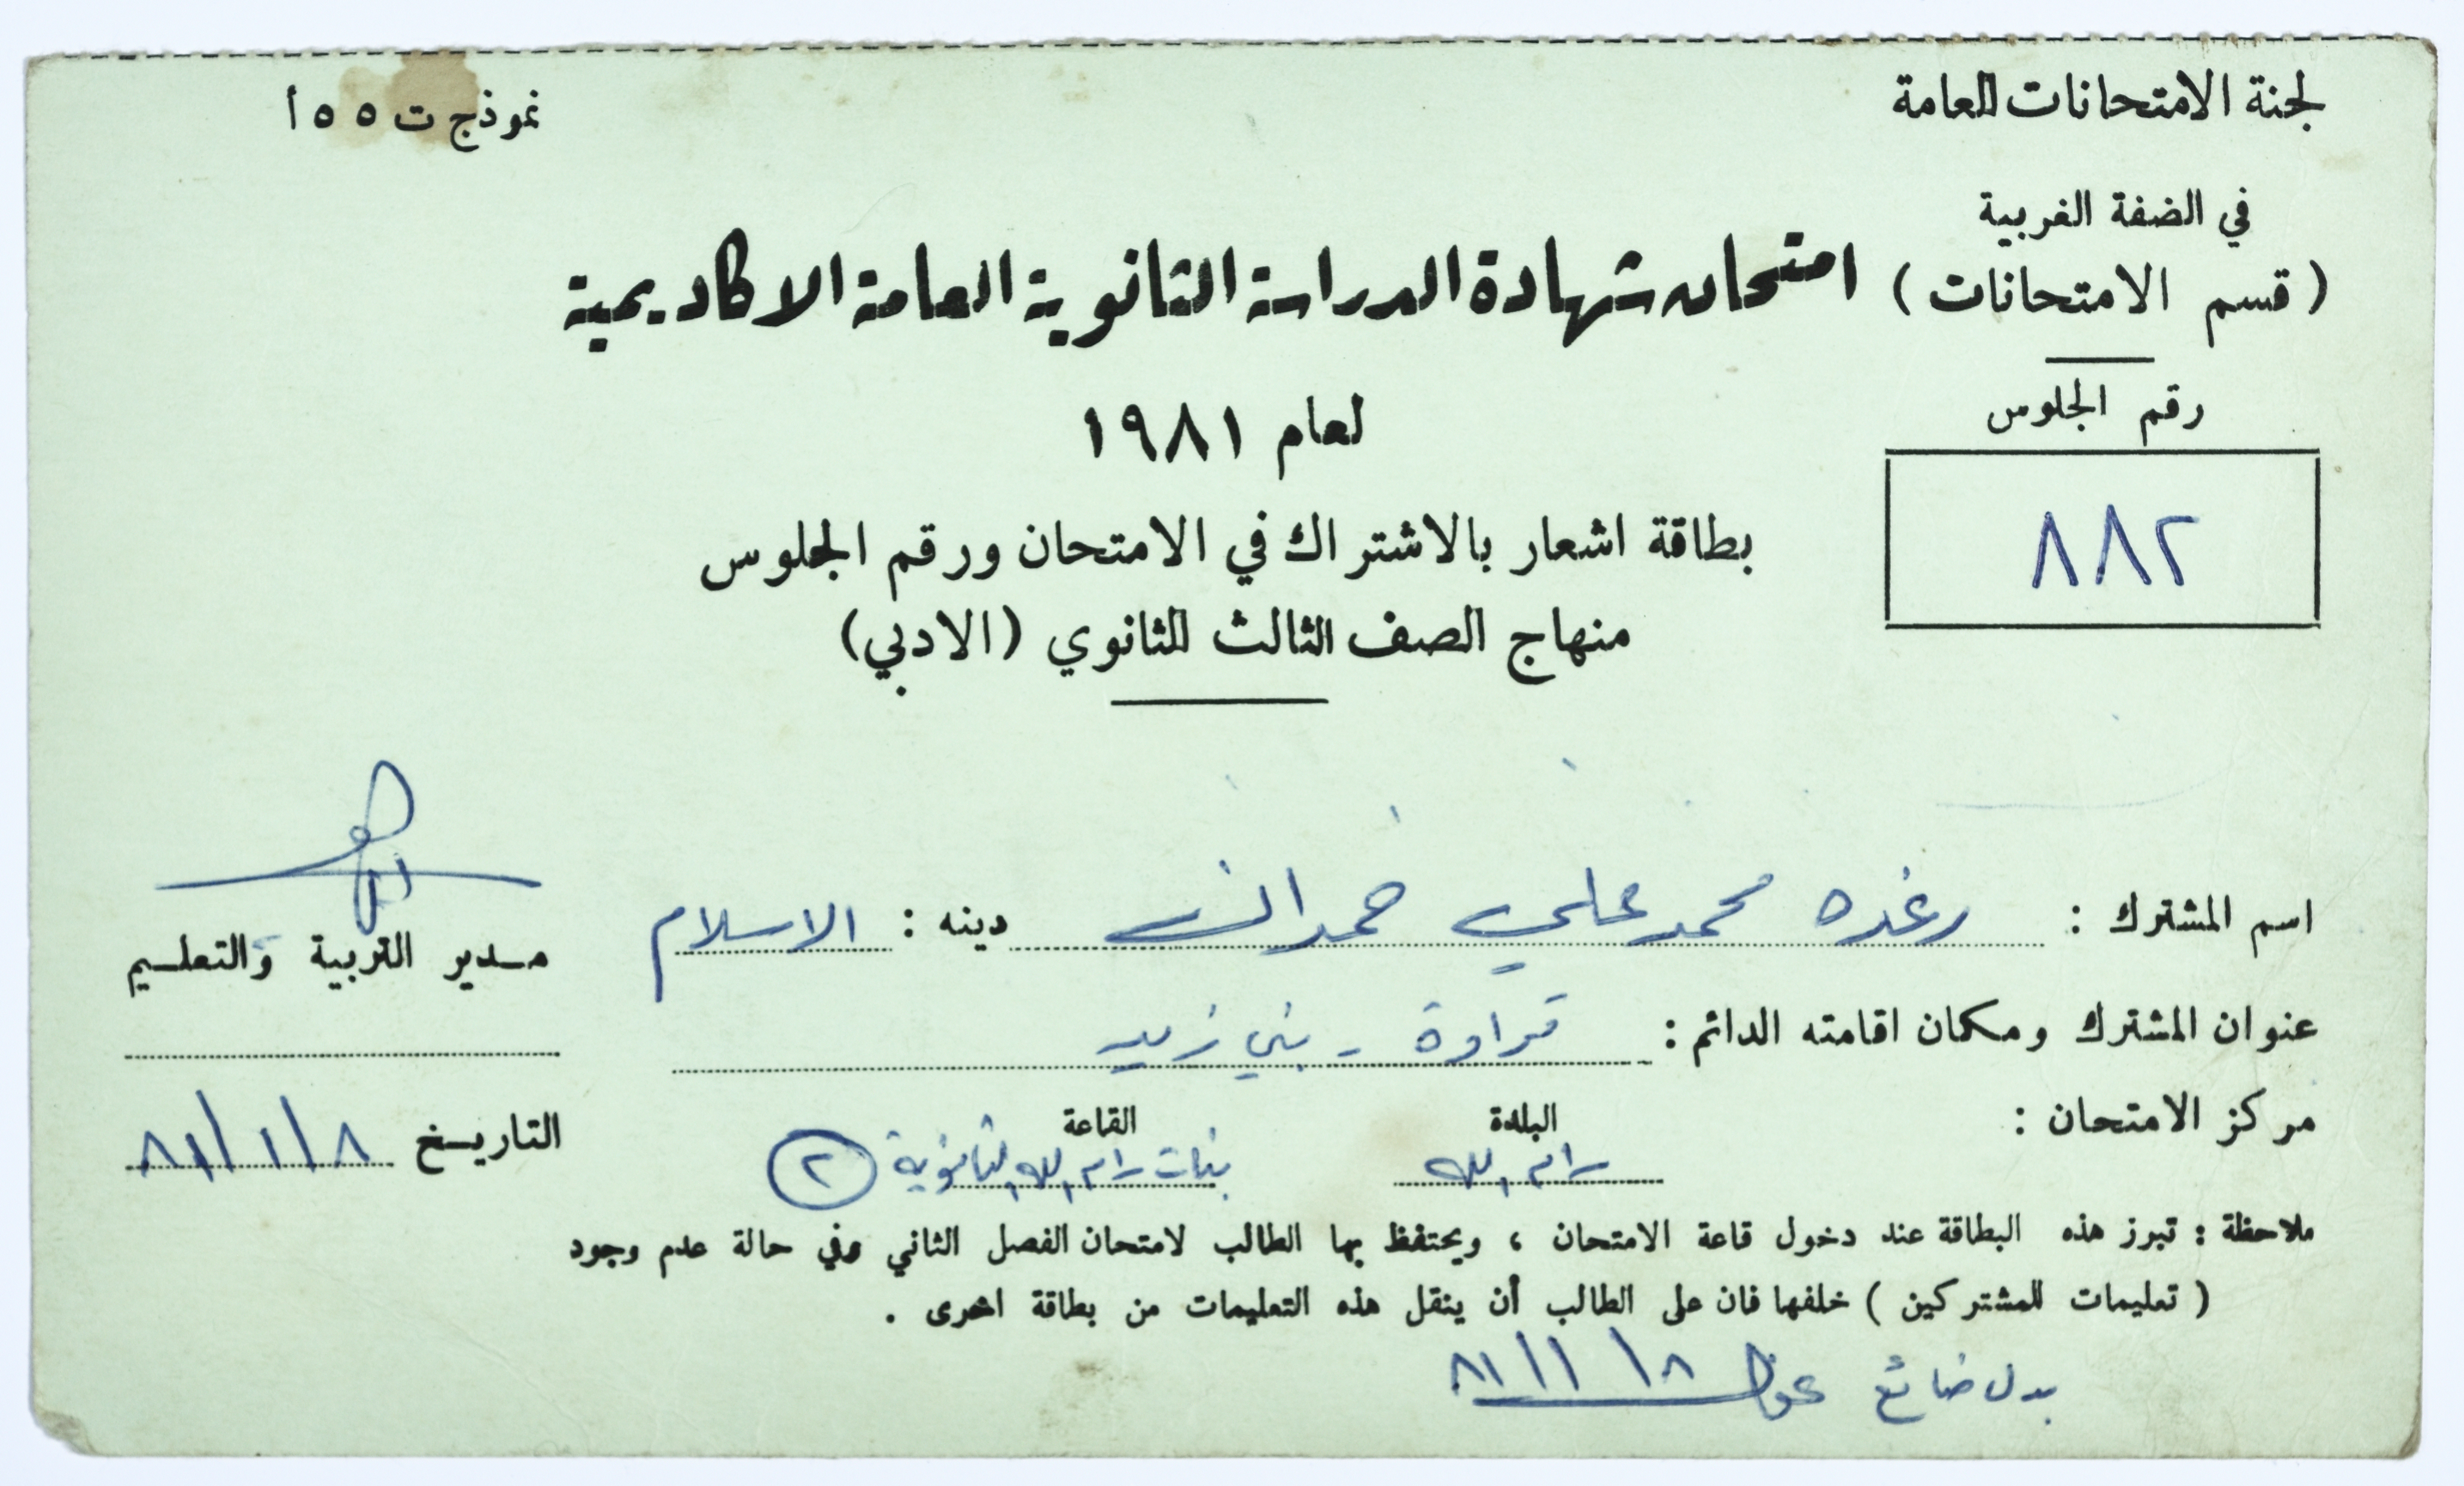 لجنة الامتحانات العامة
نموذج ت ٥٥ أ
في الضفة الغربية
( قسم الامتحانات )
امتحان شهادة الدراسة الثانوية العامة الاكاديمية
لعام ١٩٨١
رقم الجلوس
٨٨٢
بطاقة اشعار بالاشتراك في الامتحان ورقم الجلوس
منهاج الصف الثالث الثانوي (الادبي)
اسم المشترك : رغده محمد علي حمدان دينه : الاسلام
مدير التربية والتعليم
عنوان المشترك ومكان اقامته الدائم : قراوة - بني زيد
مركز الامتحان : البلدة القاعة
رام الله بنات رام الله الثانوية ٢
التاريخ ٨/١/٨١
ملاحظة : تبرز هذه البطاقة عند دخول قاعة الامتحان ، ويحتفظ بها الطالب لامتحان الفصل الثاني وفي حالة عدم وجود
( تعليمات للمشتركين ) خلفها فان على الطالب أن ينقل هذه التعليمات من بطاقة اخرى .
بدل ضائع ٨/١/٨١